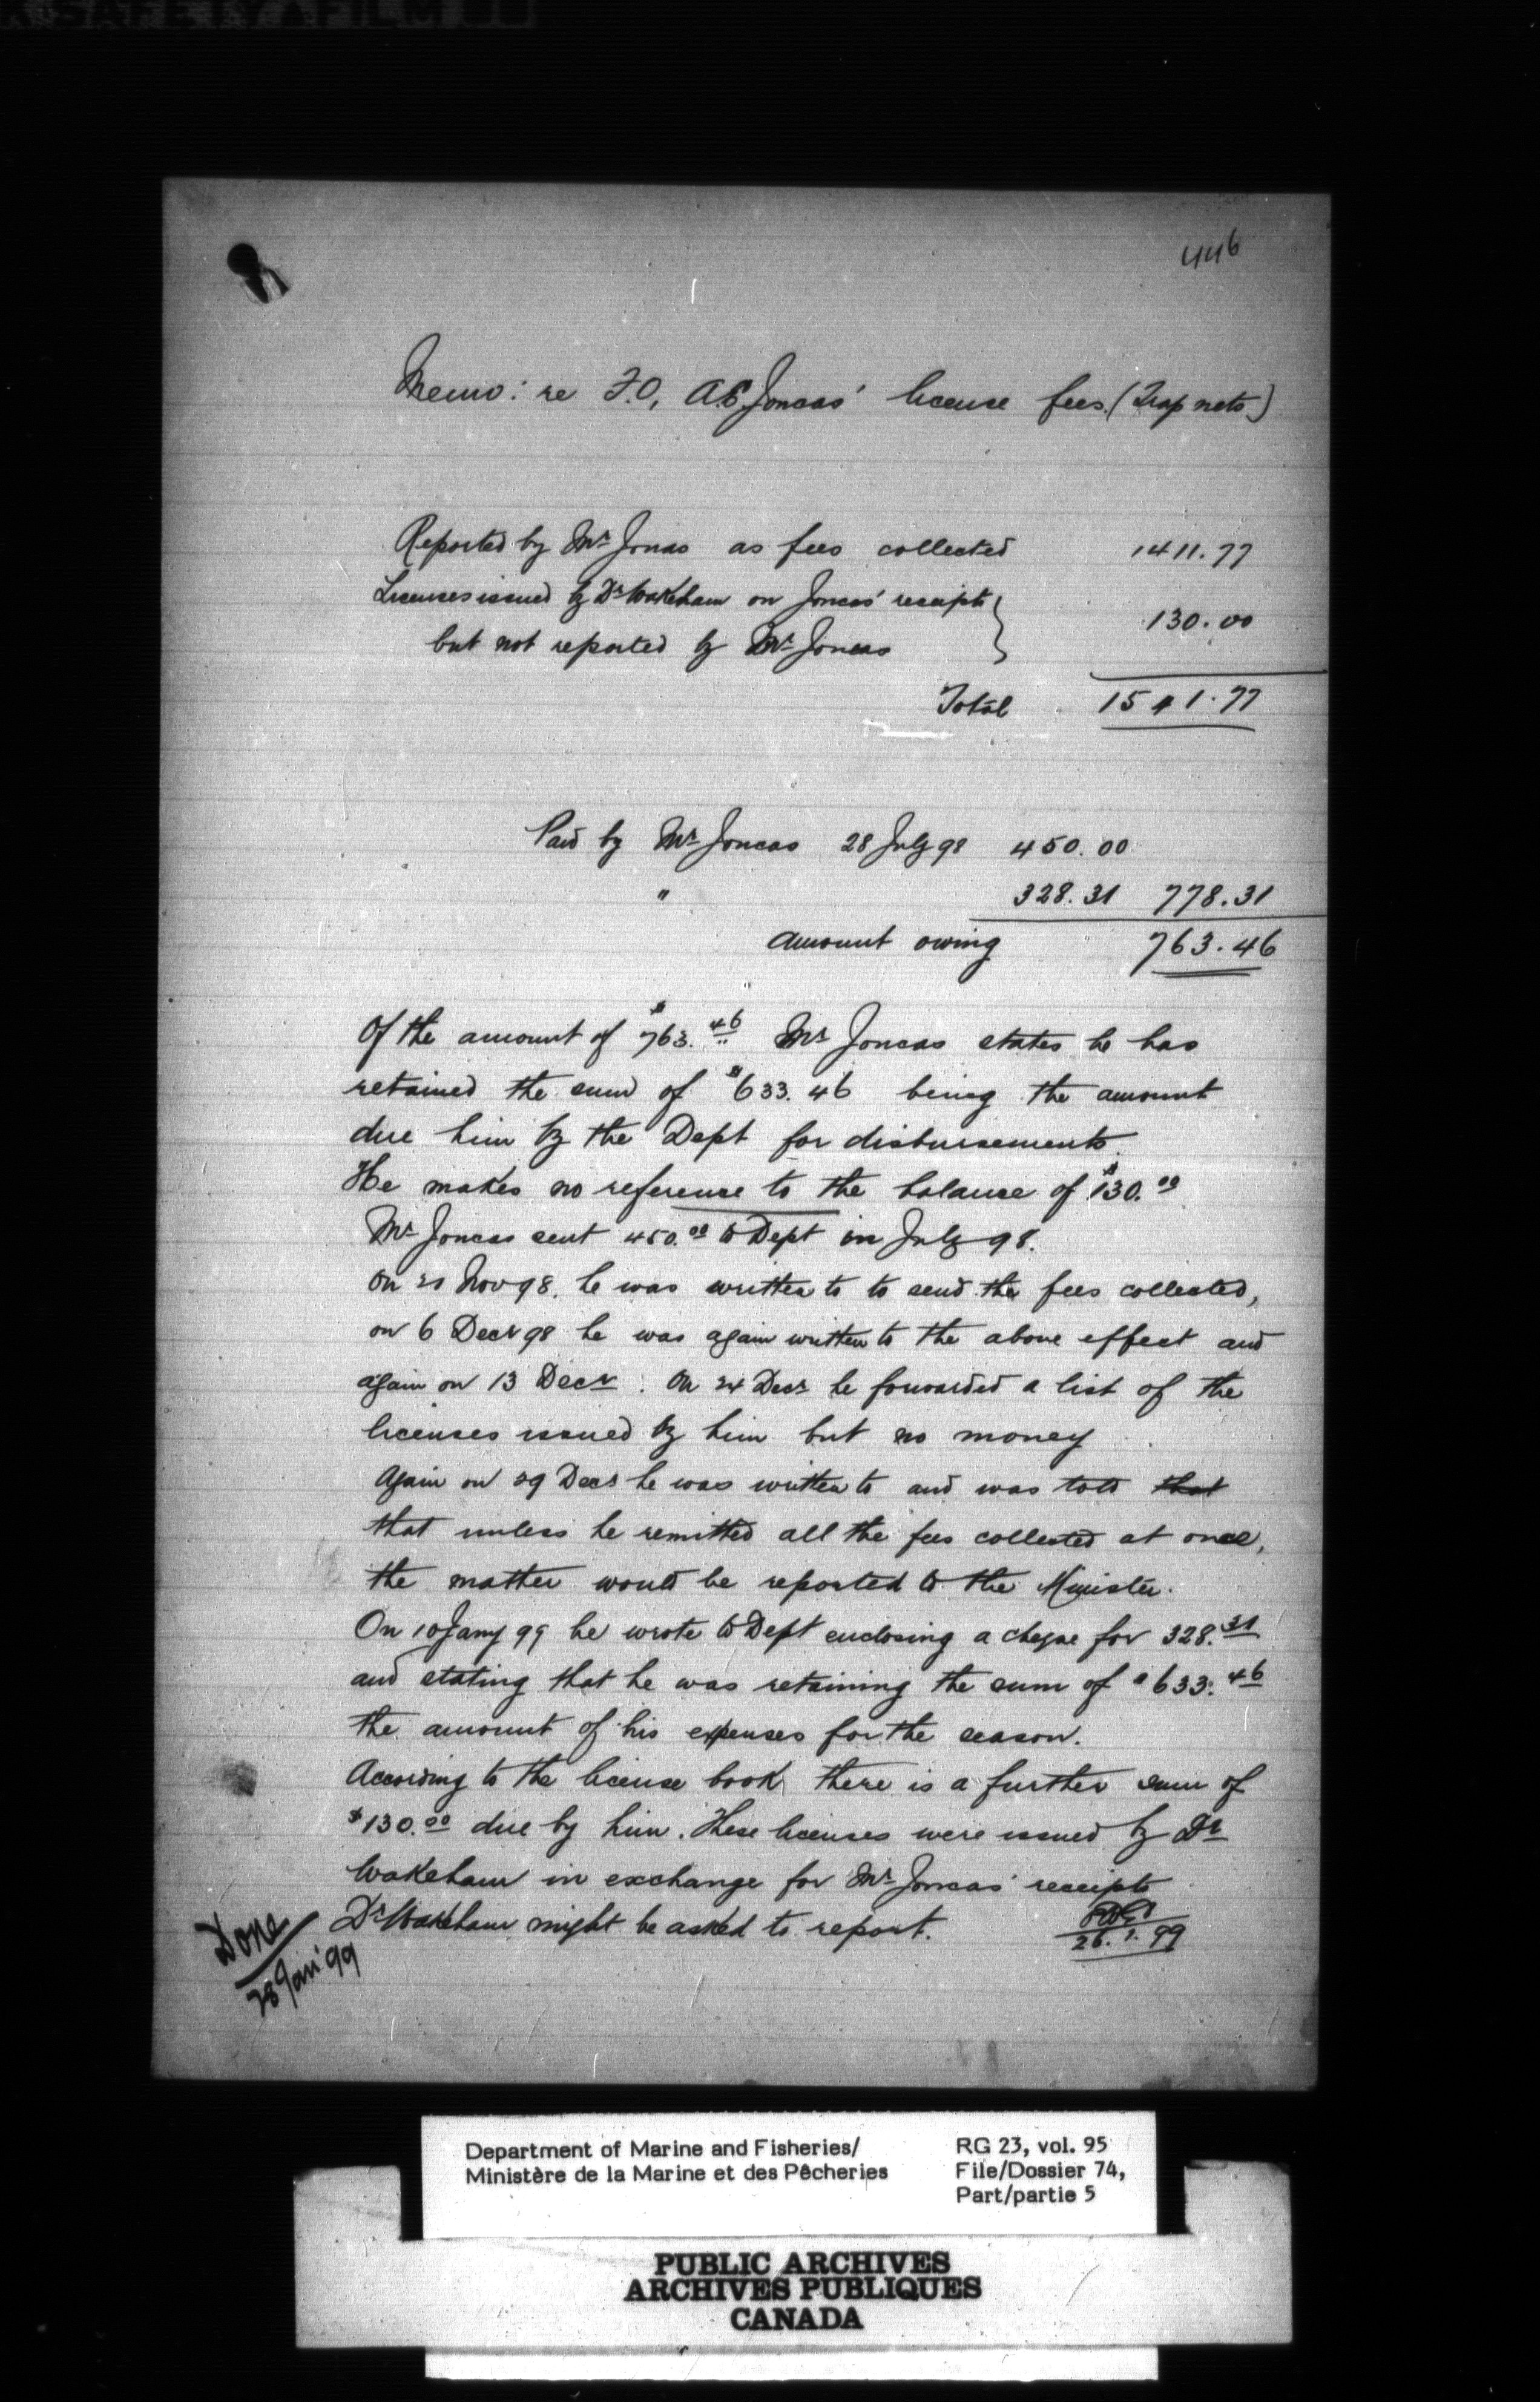 446
Memo: re F.O. A.E. Joncas' license fees. (Trap nets)
Reported by Mr Joncas as fees collected 1411.77
Licenses issued by Dr Wakeham on Joncas' receipts
but not reported by Mr Joncas } 130.00
Total 1541.77
Paid by Mr Joncas 28 July 98 450.00
" 328.31 778.31
amount owing 763.46
Of the amount of $763.46 Mr Joncas states he has
retained the sum of $633.46 being the amount
due him by the Dept for disbursements.
He makes no reference to the balance of $130.00
Mr Joncas sent 450.00 to Dept in July 98.
On 21 Nov 98. he was written to to send the fees collected,
on 6 Decr 98 he was again written to the above effect and
again on 13 Decr. On 24 Decr he forwarded a list of the
licenses issued by him but no money
Again on 29 Decr he was written to and was told that
that unless he remitted all the fees collected at once,
the matter would be reported to the Minister.
On 10 Jany 99 he wrote to Dept enclosing a cheque for 328.31
and stating that he was retaining the sum of $633.46
the amount of his expenses for the season.
According to the license book there is a further sum of
$130.00 due by him. These licenses were issued by Dr
Wakeham in exchange for Mr Joncas' receipts
Dr Wakeham might be asked to report.
26.1.99
Done
28 Jan '99
Department of Marine and Fisheries/
Ministère de la Marine et des Pêcheries
RG 23, vol. 95
File/Dossier 74,
Part/partie 5
PUBLIC ARCHIVES
ARCHIVES PUBLIQUES
CANADA